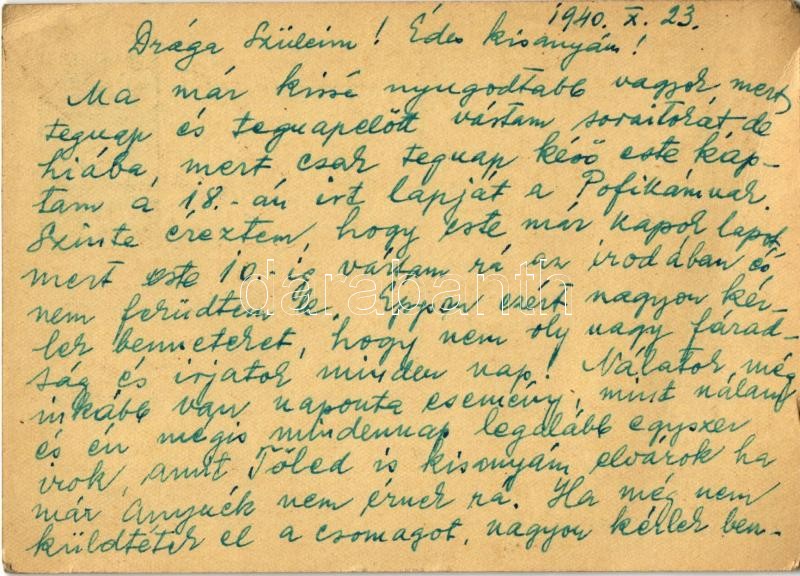 1940. X. 23.
Drága Szüleim! Édes kisanyám!
Ma már kissé nyugodtabb vagyok mert
tegnap és tegnapelőtt vártam soraitokat de
hiába, mert csak tegnap késő este kap-
tam a 18.-án irt lapját a Pofikámnak.
Szinte éreztem, hogy este már kapok lapot
mert este 10.-ig vártam rá az irodában és
nem feküdtem le. Éppen ezért nagyon kér-
lek benneteket, hogy nem oly nagy fárad-
ság és irjatok minden nap! Nálatok még
inkább van naponta esemény, mint nálam
és én mégis mindennap legalább egyszer
irok, amit Tőled is kisanyám elvárok ha
már Anyuék nem érnek rá. Ha még nem
küldtétek el a csomagot, nagyon kérlek ben-
darabanth